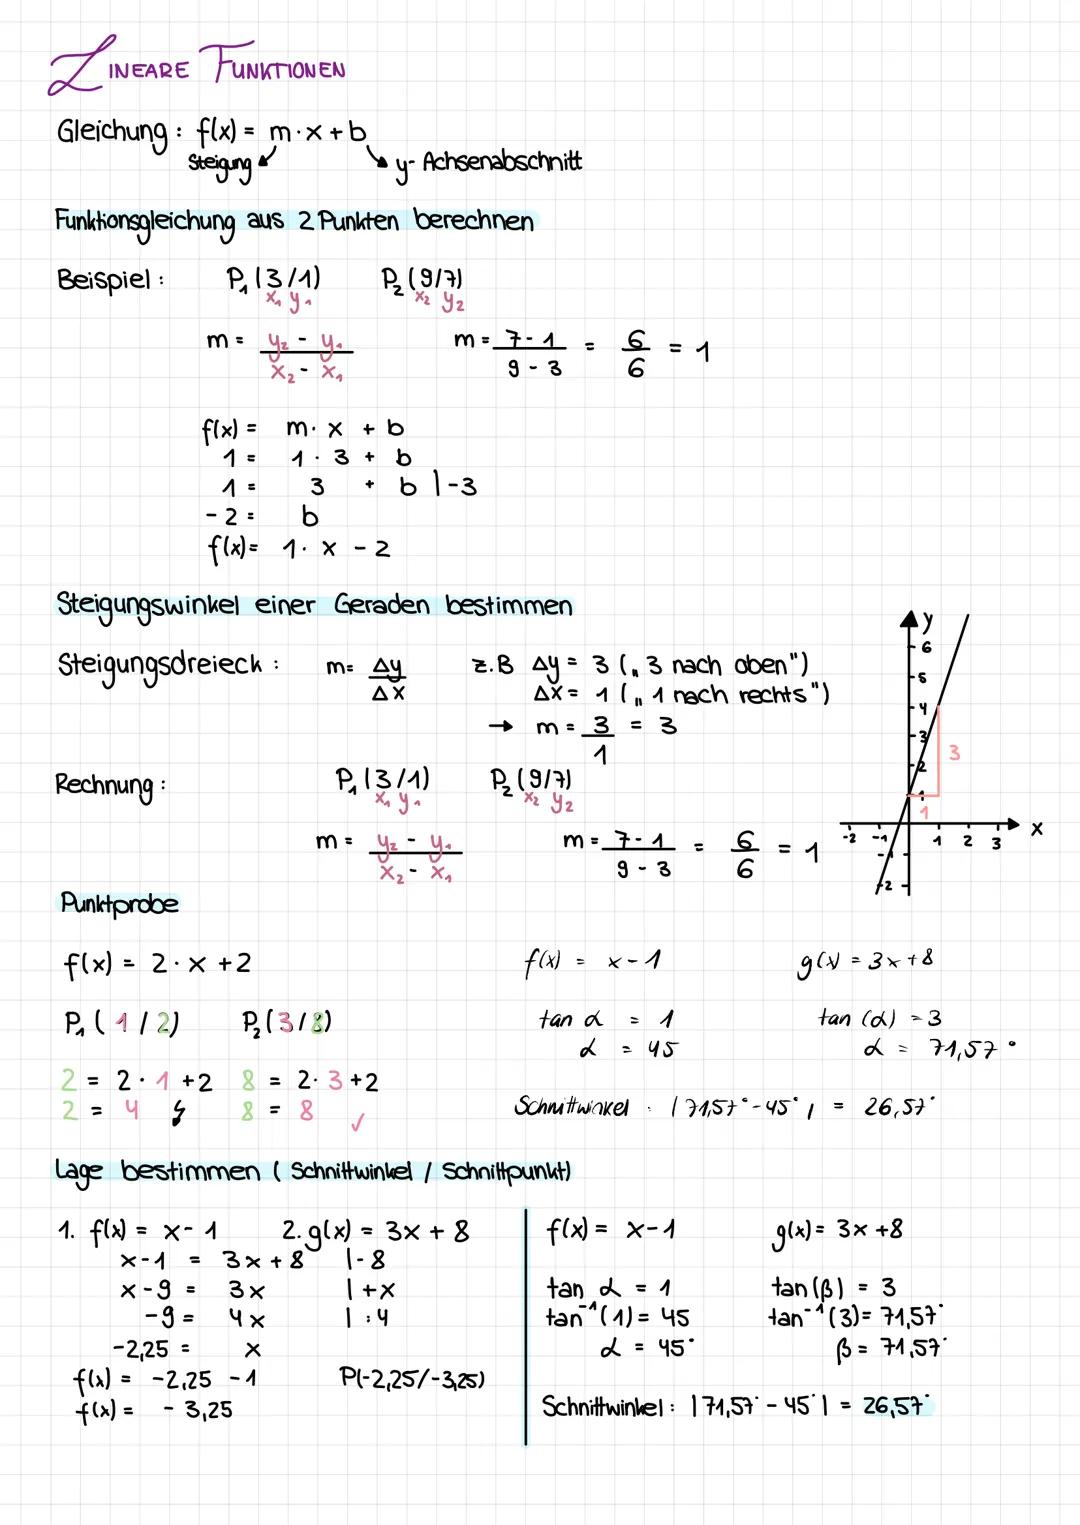 LINEARE FUNKTIONEN
Gleichung: f(x) = m·x + b
Steigung
y-Achsenabschnitt
Funktionsgleichung aus 2 Punkten berechnen
Beispiel: P₁(3/1) P₂(9/7)
x₁ y₁ x₂ y₂
m = (y₂ - y₁)/(x₂ - x₁) m = (7-1)/(9-3) = 6/6 = 1
f(x) = m·x + b
1 = 1·3 + b
1 = 3 + b |-3
-2 = b
f(x) = 1·x - 2
Steigungswinkel einer Geraden bestimmen
Steigungsdreieck: m = Δy/Δx z.B Δy = 3 („3 nach oben")
Δx = 1 („1 nach rechts")
→ m = 3/1 = 3
y
6
5
4
3
2
1
3
1
-2 -1 1 2 3 x
-1
-2
Rechnung: P₁(3/1) P₂(9/7)
x₁ y₁ x₂ y₂
m = (y₂ - y₁)/(x₂ - x₁) m = (7-1)/(9-3) = 6/6 = 1
Punktprobe
f(x) = 2·x + 2
P₁(1/2) P₂(3/8)
2 = 2·1 + 2 8 = 2·3 + 2
2 = 4 ↯ 8 = 8 ✓
f(x) = x - 1 g(x) = 3x + 8
tan α = 1 tan (α) = 3
α = 45 α = 71,57°
Schnittwinkel: |71,57° - 45°| = 26,57°
Lage bestimmen (Schnittwinkel / Schnittpunkt)
1. f(x) = x - 1 2. g(x) = 3x + 8
x - 1 = 3x + 8 |-8
x - 9 = 3x |+x
-9 = 4x |:4
-2,25 = x
f(x) = -2,25 - 1 P(-2,25/-3,25)
f(x) = -3,25
f(x) = x - 1 g(x) = 3x + 8
tan α = 1 tan(β) = 3
tan⁻¹(1) = 45 tan⁻¹(3) = 71,57°
α = 45° β = 71,57°
Schnittwinkel: |71,57° - 45°| = 26,57°